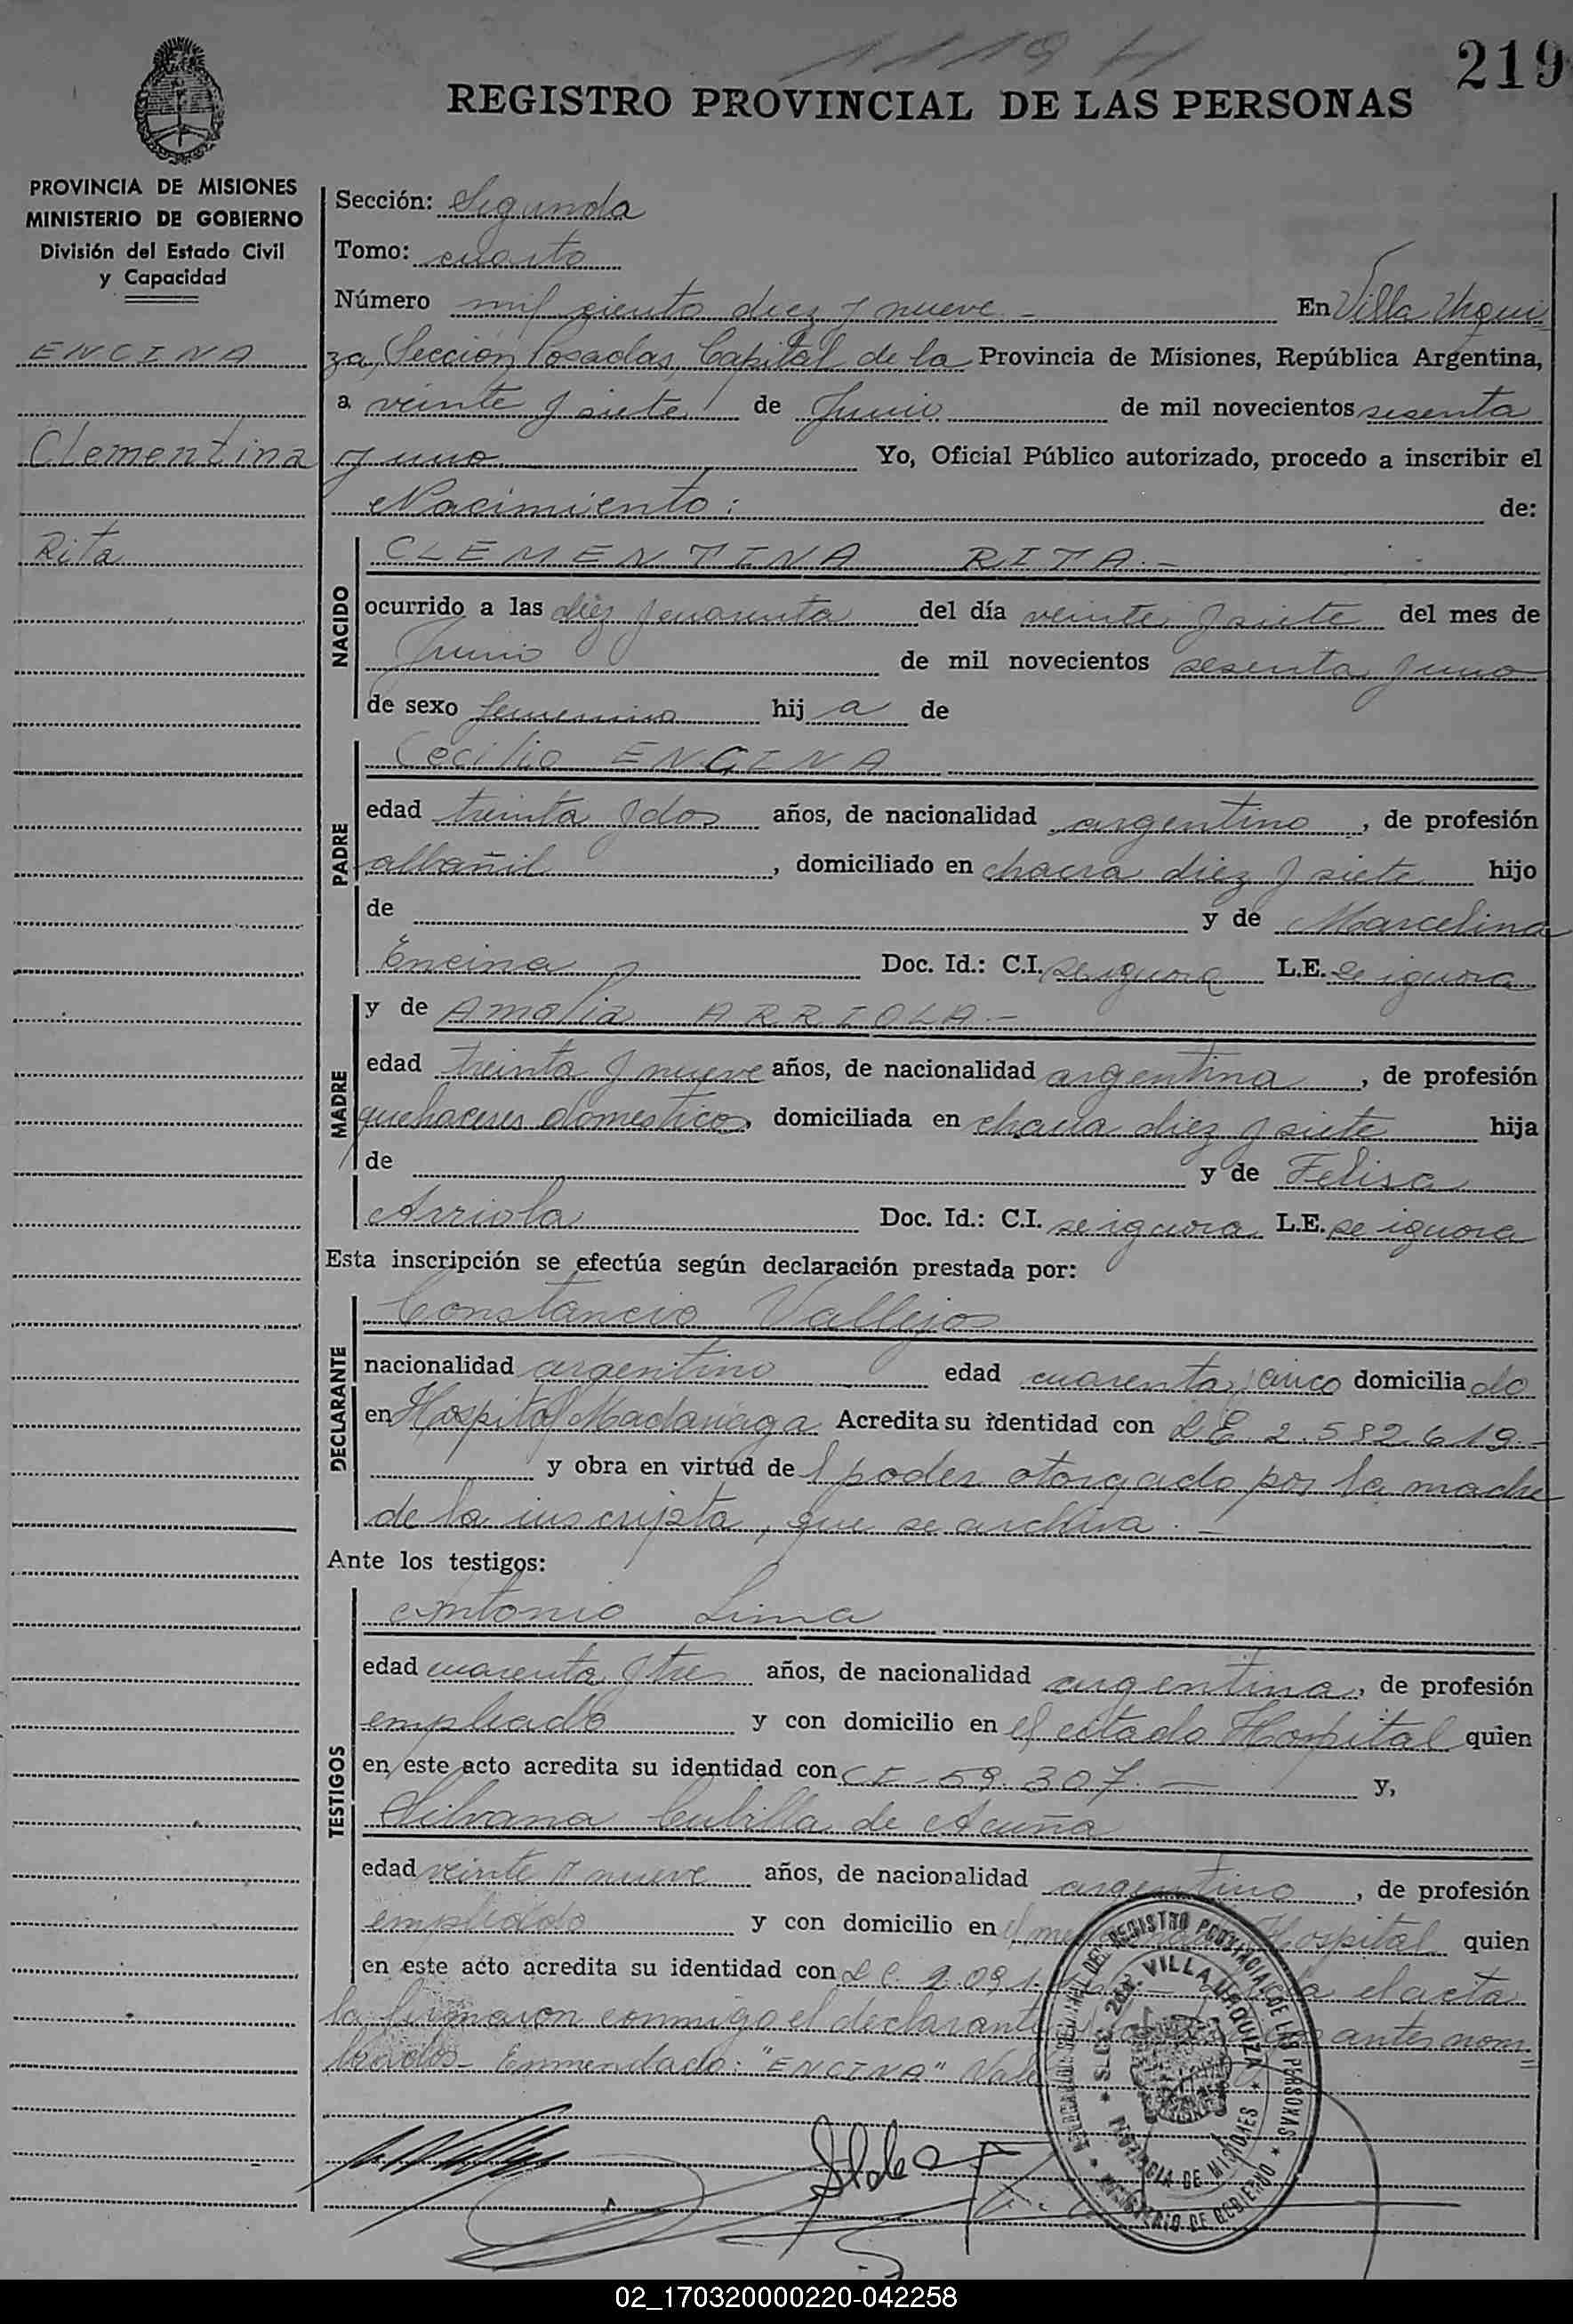 1119 H
219
REGISTRO PROVINCIAL DE LAS PERSONAS
PROVINCIA DE MISIONES
MINISTERIO DE GOBIERNO
División del Estado Civil
y Capacidad
ENCINA
Clementina
Rita
Sección: Segunda
Tomo: cuarto
Número mil ciento diez y nueve - En Villa Urqui-
za, Sección Posadas, Capital de la Provincia de Misiones, República Argentina,
a veinte y siete de Junio de mil novecientos sesenta
y uno Yo, Oficial Público autorizado, procedo a inscribir el
Nacimiento: de:
NACIDO
CLEMENTINA RITA.-
ocurrido a las diez y cuarenta del día veinte y siete del mes de
Junio de mil novecientos sesenta y uno
de sexo femenino hij a de
PADRE
Cecilio ENCINA
edad treinta y dos años, de nacionalidad argentino, de profesión
albañil, domiciliado en chacra diez y siete hijo
de y de Marcelina
Encina y Doc. Id.: C.I. se ignora L.E. se ignora
MADRE
y de Amalia ARRIOLA.-
edad treinta y nueve años, de nacionalidad argentina, de profesión
quehaceres domesticos, domiciliada en chacra diez y siete hija
de y de Felisa
Arriola Doc. Id.: C.I. se ignora L.E. se ignora
Esta inscripción se efectúa según declaración prestada por:
DECLARANTE
Constancio Vallejos
nacionalidad argentino edad cuarenta y cinco domicilia do
en Hospital Madariaga Acredita su identidad con L.E. 2.582.619.-
y obra en virtud de l poder otorgado por la madre
de la inscripta, que se archiva.-
Ante los testigos:
TESTIGOS
Antonio Lima
edad cuarenta y tres años, de nacionalidad argentina, de profesión
empleado y con domicilio en el citado Hospital quien
en este acto acredita su identidad con CI-59.307.- y,
Silvana Cubilla de Acuña
edad veinte y nueve años, de nacionalidad argentino, de profesión
empleado y con domicilio en el Hospital quien
en este acto acredita su identidad con L C. 2.091. el acta
la firmaron conmigo el declarante antes nom=
brados- Enmendado: "ENCINA" Vale
DEL REGISTRO PROVINCIAL DE LAS PERSONAS * MINISTERIO DE GOBIERNO *
SECC. 2da. VILLA URQUIZA * PROVINCIA DE MISIONES *
02_170320000220-042258